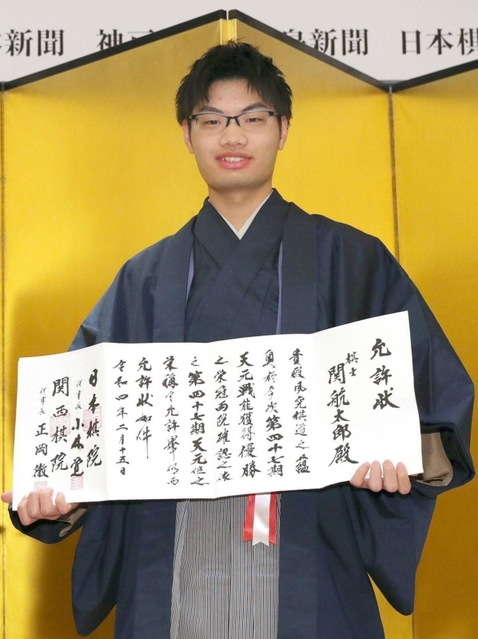 新聞
神
新聞
日本棋
允許状
棋士
関航太郎殿
貴殿夙究棋道之蘊
奥於今次第四十七期
天元戦能獲得優勝
之栄冠両院確認之
之第四十七期天元位之
栄称令允許畢仍而
允許状如件
令和四年二月十五日
日本棋院
理事長 小林覚
関西棋院
理事長 正岡徹